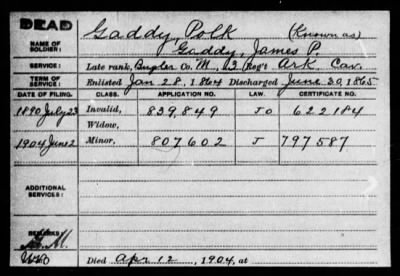 DEAD
Gaddy, Polk (Known as)
NAME OF SOLDIER: Gaddy, James P.
SERVICE: Late rank, Bugler Co. M, 3 Reg't Ark. Cav.
TERM OF SERVICE: Enlisted Jan 28, 1864 Discharged June 30, 1865
DATE OF FILING. CLASS. APPLICATION NO. LAW. CERTIFICATE NO.
1890 July 23 Invalid, 839,849 622184
Widow,
1904 June 2 Minor, 807,602 J 797587
ADDITIONAL SERVICES:
REMARKS:
Died Apr 12, 1904, at